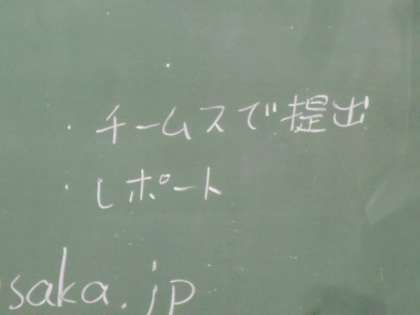 ・チームスで提出
・レポート
saka.jp